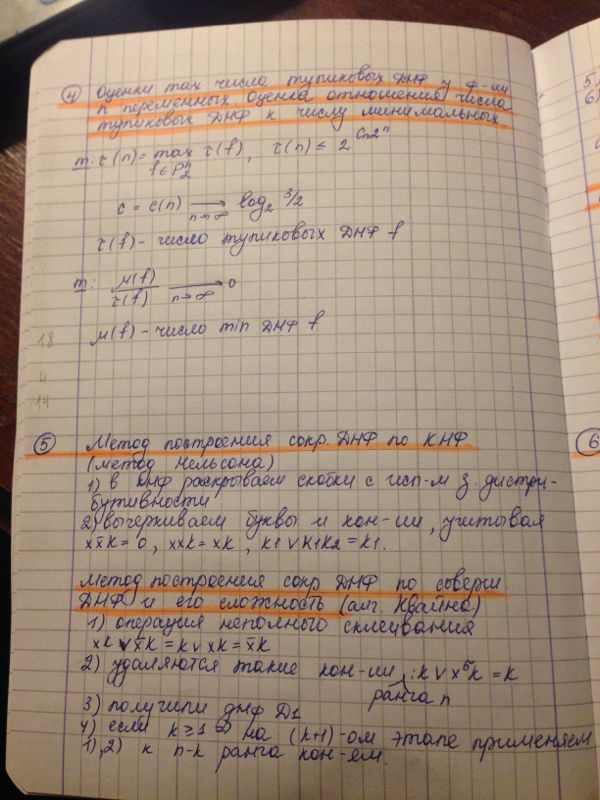 4 Оценки max числа тупиковых ДНФ у ф-ии
n переменных Оценка отношения числа
тупиковых ДНФ к числу минимальных
т. τ(n) = max τ(f), τ(n) ≤ 2^{Cn2^n}
f∈P_2^n
c = c(n) →_{n→∞} log_2 3/2
τ(f) - число тупиковых ДНФ f
т: μ(f)/τ(f) →_{n→∞} 0
μ(f) - число min ДНФ f
18
4
14
5 Метод построения сокр. ДНФ по КНФ
(метод Нельсона)
1) в ДНФ раскрываем скобки с исп-м з. дистри-
бутивности
2) вычеркиваем буквы и кон-ии, учитывая
xx̄K = 0, xxK = xK, K1 ∨ K1K2 = K1.
Метод построения сокр ДНФ по соверш.
ДНФ и его сложность (алг. Квайна)
1) операция неполного склеивания
xK ∨ x̄K = K ∨ xK = x̄K
2) удаляются такие кон-ии, : K ∨ x^σK = K
ранга n
3) получили днф D1
4) если k ≥ 1 на (k+1)-ом этапе применяем
1), 2) к n-k ранга кон-ем.
5
6)
6